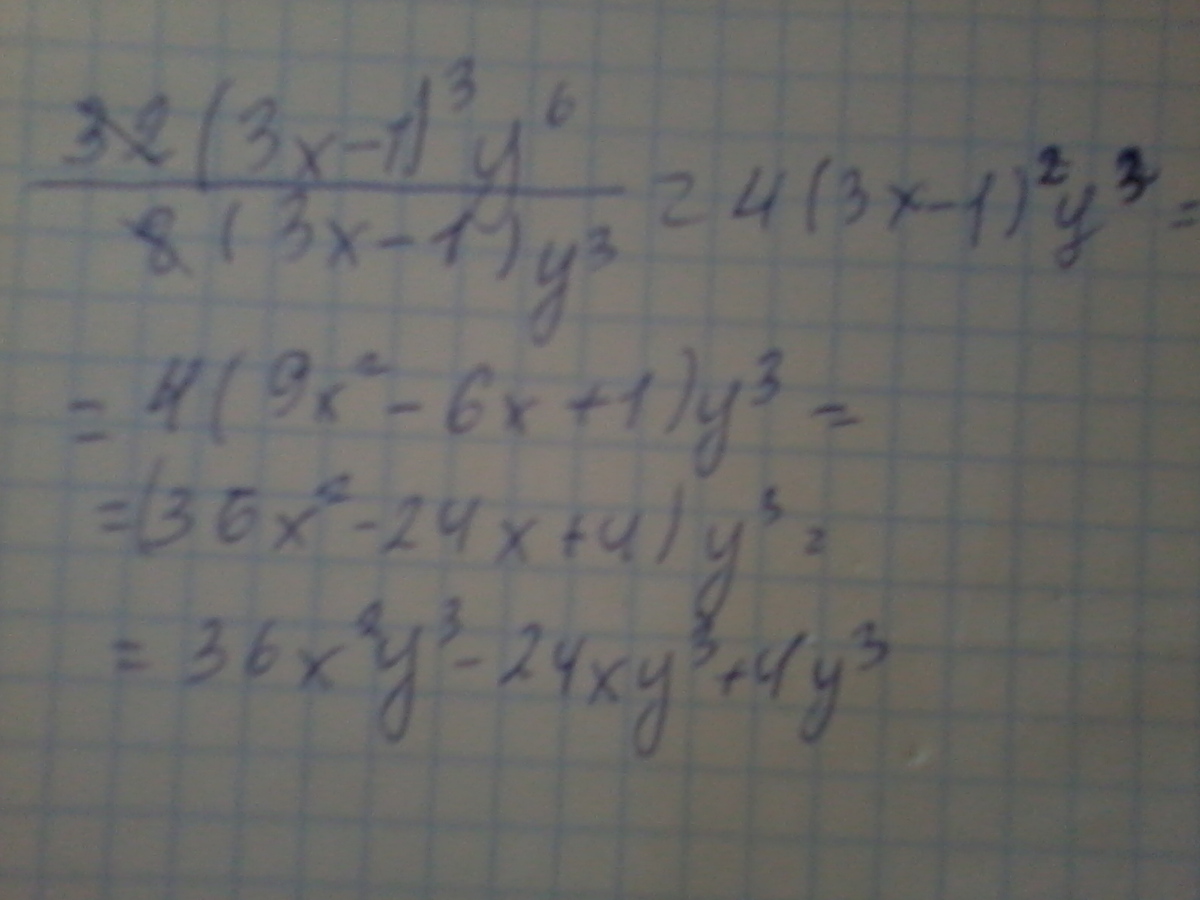 32(3x-1)³y⁶ / 8(3x-1)y³ = 4(3x-1)²y³ =
= 4(9x²-6x+1)y³ =
=(36x²-24x+4)y³ =
= 36x²y³-24xy³+4y³